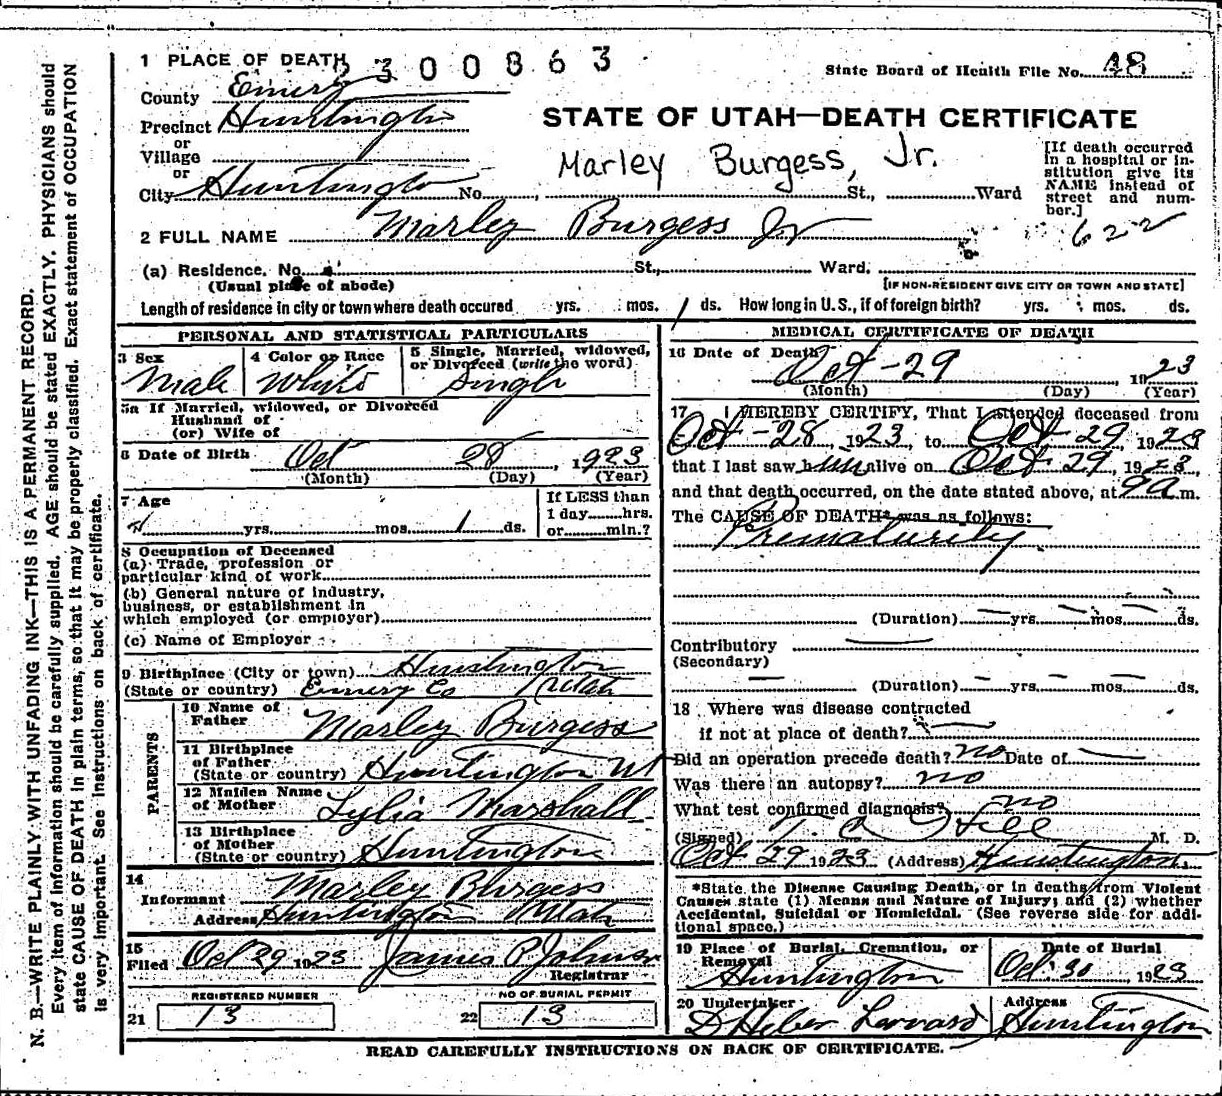 1 PLACE OF DEATH 2300863 State Board of Health File No. 48
County Emery
Precinct Huntington
or
Village
or
City Huntington No. St., Ward
STATE OF UTAH—DEATH CERTIFICATE
Marley Burgess, Jr.
[If death occurred
in a hospital or in-
stitution give its
NAME instead of
street and num-
ber.]
622
2 FULL NAME Marley Burgess Jr
(a) Residence. No. St., Ward.
(Usual place of abode) [IF NON-RESIDENT GIVE CITY OR TOWN AND STATE]
Length of residence in city or town where death occured yrs. mos. 1 ds. How long in U.S., if of foreign birth? yrs. mos. ds.
PERSONAL AND STATISTICAL PARTICULARS
3 Sex Male
4 Color or Race White
5 Single, Married, widowed,
or Divorced (write the word)
Single
5a If Married, widowed, or Divorced
Husband of
(or) Wife of
6 Date of Birth Oct 28, 1923
(Month) (Day) (Year)
7 Age
yrs. mos. 1 ds.
If LESS than
1 day hrs.
or min.?
8 Occupation of Deceased
(a) Trade, profession or
particular kind of work
(b) General nature of industry,
business, or establishment in
which employed (or employer)
(c) Name of Employer
9 Birthplace (City or town) Huntington
(State or country) Emery Co Utah
PARENTS
10 Name of
Father Marley Burgess
11 Birthplace
of Father
(State or country) Huntington Ut
12 Maiden Name
of Mother Lylia Marshall
13 Birthplace
of Mother
(State or country) Huntington
14
Informant Marley Burgess
Address Huntington Utah
15
Filed Oct 29 1923 James P Johnson
Registrar
REGISTERED NUMBER NO OF BURIAL PERMIT
21 13 22 13
MEDICAL CERTIFICATE OF DEATH
16 Date of Death Oct-29, 1923
(Month) (Day) (Year)
17 I HEREBY CERTIFY, That I attended deceased from
Oct-28, 1923, to Oct 29, 1923
that I last saw him alive on Oct 29, 1923,
and that death occurred, on the date stated above, at 9 a m.
The CAUSE OF DEATH* was as follows:
Prematurity
(Duration) — yrs. — mos. — ds.
Contributory
(Secondary)
— (Duration) — yrs. — mos. — ds.
18 Where was disease contracted
if not at place of death?
Did an operation precede death? no Date of —
Was there an autopsy? no
What test confirmed diagnosis? no
(Signed) M. D.
Oct 29 1923 (Address) Huntington.
*State the Disease Causing Death, or in deaths from Violent
Causes state (1) Means and Nature of Injury; and (2) whether
Accidental, Suicidal or Homicidal. (See reverse side for addi-
tional space.)
19 Place of Burial, Cremation, or
Removal
Huntington
Date of Burial
Oct 30, 1923
20 Undertaker
D Heber Leonard
Address
Huntington
READ CAREFULLY INSTRUCTIONS ON BACK OF CERTIFICATE.
N. B.—WRITE PLAINLY WITH UNFADING INK—THIS IS A PERMANENT RECORD.
Every item of information should be carefully supplied. AGE should be stated EXACTLY. PHYSICIANS should
state CAUSE OF DEATH in plain terms, so that it may be properly classified. Exact statement of OCCUPATION
is very important. See instructions on back of certificate.